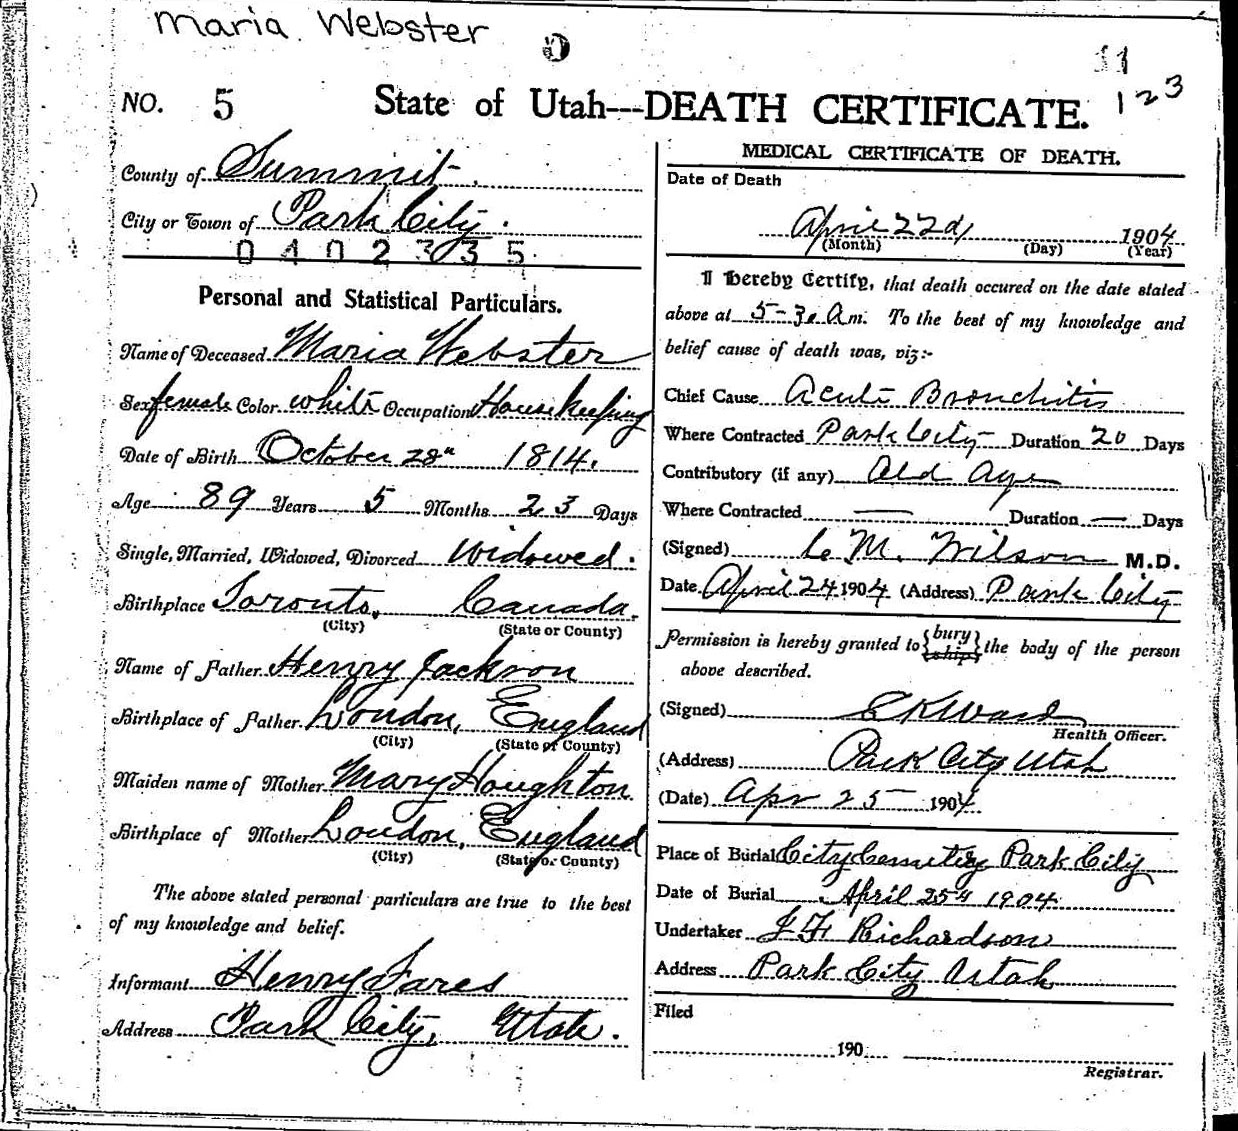 Maria Webster
11
123
NO. 5 State of Utah---DEATH CERTIFICATE.
County of Summit.
City or Town of Park City.
0402335
Personal and Statistical Particulars.
Name of Deceased Maria Webster
Sex female Color white Occupation Housekeeping
Date of Birth October 28th 1814.
Age 89 Years 5 Months 23 Days
Single, Married, Widowed, Divorced Widowed.
Birthplace Toronto, Canada.
(City) (State or County)
Name of Father Henry Jackson
Birthplace of Father London, England
(City) (State or County)
Maiden name of Mother Mary Houghton
Birthplace of Mother London, England
(City) (State or County)
The above stated personal particulars are true to the best
of my knowledge and belief.
Informant Henry Fares
Address Park City, Utah.
MEDICAL CERTIFICATE OF DEATH.
Date of Death
April 22d, 1904
(Month) (Day) (Year)
I hereby Certify, that death occured on the date stated
above at 5-30 Am. To the best of my knowledge and
belief cause of death was, viz:-
Chief Cause Acute Bronchitis
Where Contracted Park City Duration 20 Days
Contributory (if any) Old Age
Where Contracted — Duration — Days
(Signed) C M. Wilson M.D.
Date April 24 1904 (Address) Park City
Permission is hereby granted to {bury ship} the body of the person
above described.
(Signed) E K Ward
Health Officer.
(Address) Park City Utah
(Date) Apr 25 1904
Place of Burial City Cemetery Park City
Date of Burial April 25th 1904
Undertaker J F Richardson
Address Park City Utah
Filed
190
Registrar.